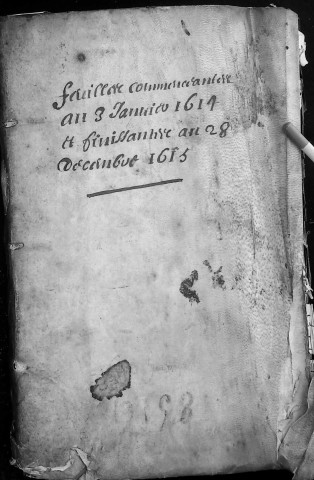 feuilles commenceantes
au 8 Janvier 1614
et finissantes au 28
Decembre 1615